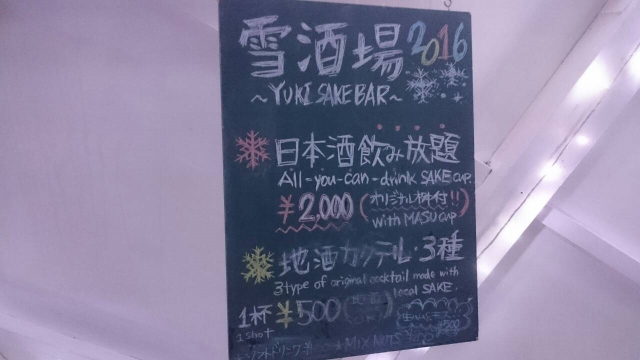 雪酒場 2016
~YUKI SAKE BAR~
日本酒飲み放題
All-you-can-drink SAKE cup.
¥2,000 (オリジナル枡付!!)
with MASU cup
地酒カクテル・3種
3type of original cocktail made with
local SAKE.
1杯 ¥500
1shot
MIX NUTS